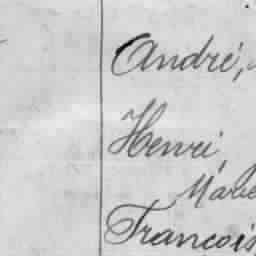 André,
Henri,
Marie
François